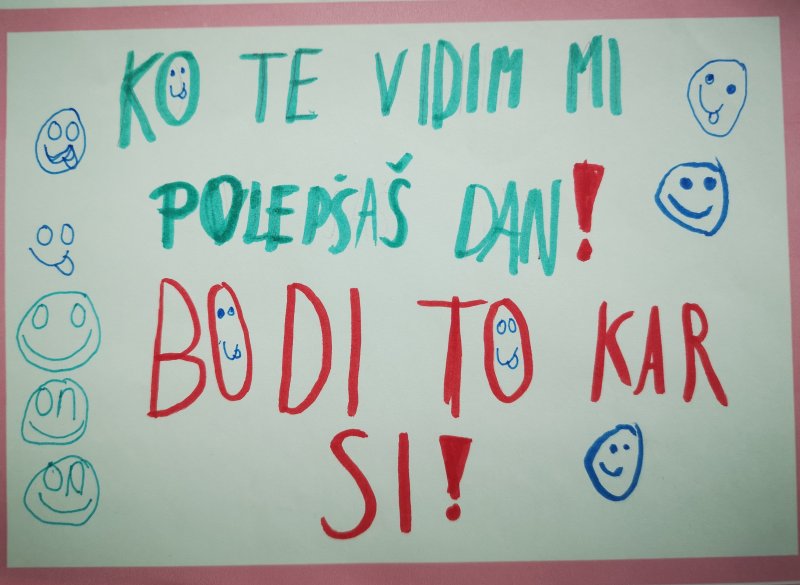 KO TE VIDIM MI
POLEPŠAŠ DAN!
BODI TO KAR
SI!